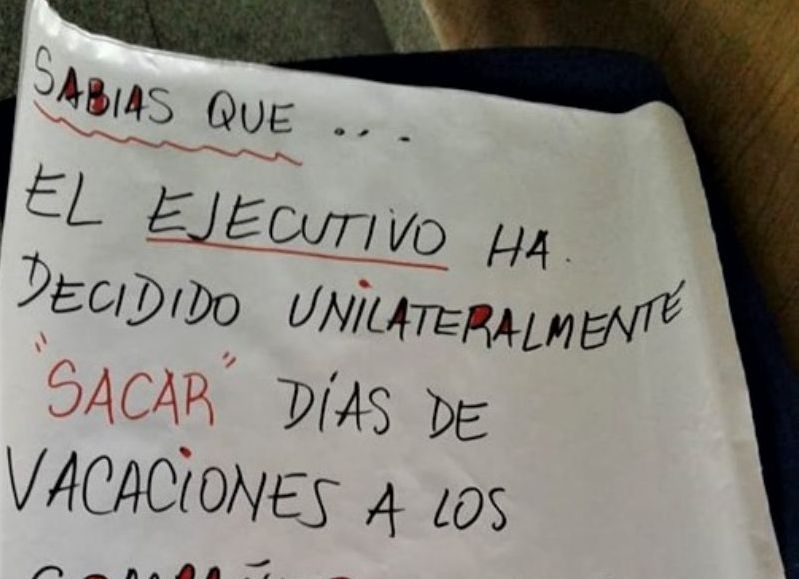 SABIAS QUE ...
EL EJECUTIVO HA
DECIDIDO UNILATERALMENTE
"SACAR" DÍAS DE
VACACIONES A LOS